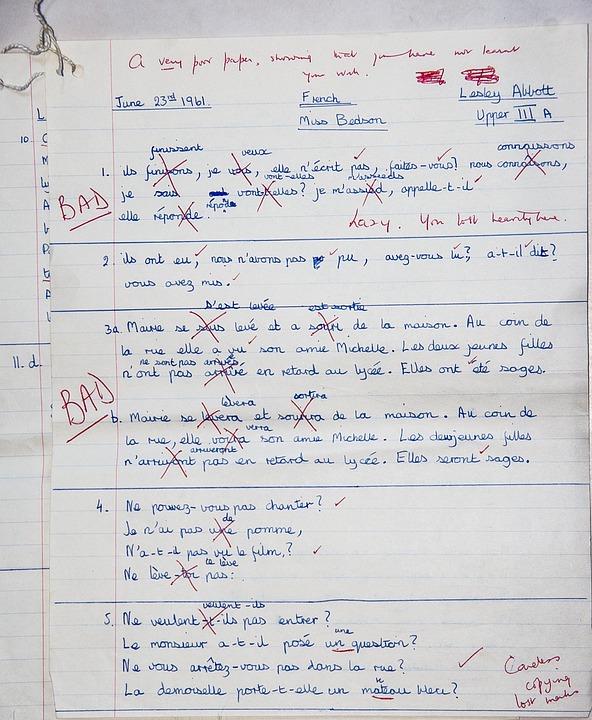 A very poor paper, showing that you have not learnt
your work.
June 23rd 1961.
French
Lesley Abbott
Miss Bedson
Upper III A
finissent veux connaissons
1. ils finissons, je vous, elle n'écrit pas, faites-vous? nous connaisons,
vont-elles m'assieds
je sais vont-elles? je m'assied, appelle-t-il
BAD
elle réponde. répond
Lazy. You lost heavily here.
2. ils ont eu, nous n'avons pas pu, avez-vous lu? a-t-il dit?
vous avez mis.
s'est levée est sortie
3a. Marie se suis levé et a souri de la maison. Au coin de
la rue elle a vu son amie Michelle. Les deux jeunes filles
ne sont pas arrivés
n'ont pas arrivé en retard au lycée. Elles ont été sages.
BAD
lèvera sortira
b. Mairie se levera et sourira de la maison. Au coin de
verra
la rue, elle voira son amie Michelle. Les deux jeunes filles
arriveront
n'arriyont pas en retard au lycée. Elles seront sages.
4. Ne pouvez-vous pas chanter?
de
Je n'ai pas une pomme,
N'a-t-il pas vu le film?
te lève
Ne lève-toi pas.
veulent-ils
5. Ne veulent-t-ils pas entrer?
une
Le monsieur a-t-il posé un question?
Ne vous arrêtez-vous pas dans la rue?
La demoiselle porte-t-elle un mateau bleu?
Careless
copying
lost marks
10.
11. d.